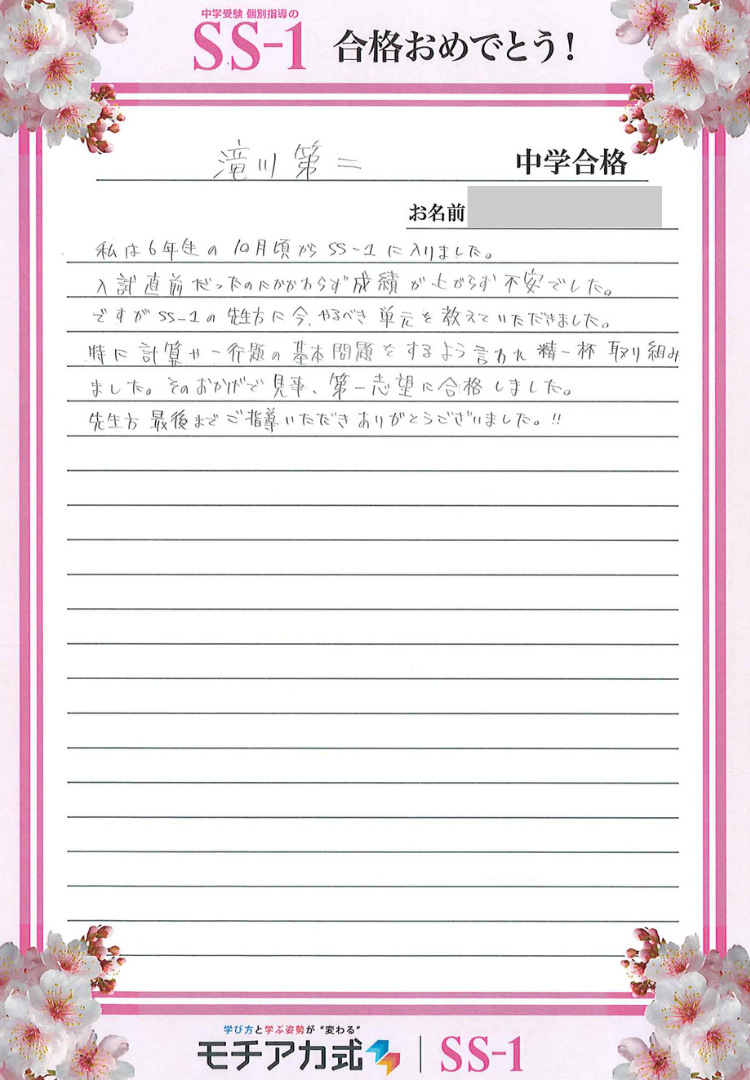 中学受験 個別指導の
SS-1 合格おめでとう!
滝川第二 中学合格
お名前
私は6年生の10月頃からSS-1に入りました。
入試直前だったのにかかわらず成績が上がらず不安でした。
ですがSS-1の先生方に今、やるべき単元を教えていただきました。
特に計算や一行題の基本問題をするよう言われ精一杯取り組み
ました。そのおかげで見事、第一志望に合格しました。
先生方最後までご指導いただきありがとうございました。!!
学び方と学ぶ姿勢が“変わる”
モチアカ式 SS-1